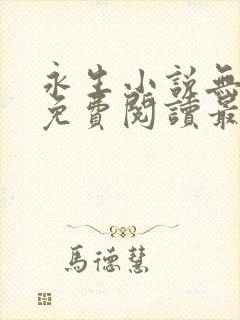 永生小説無
免費閱讀最
馬德慧